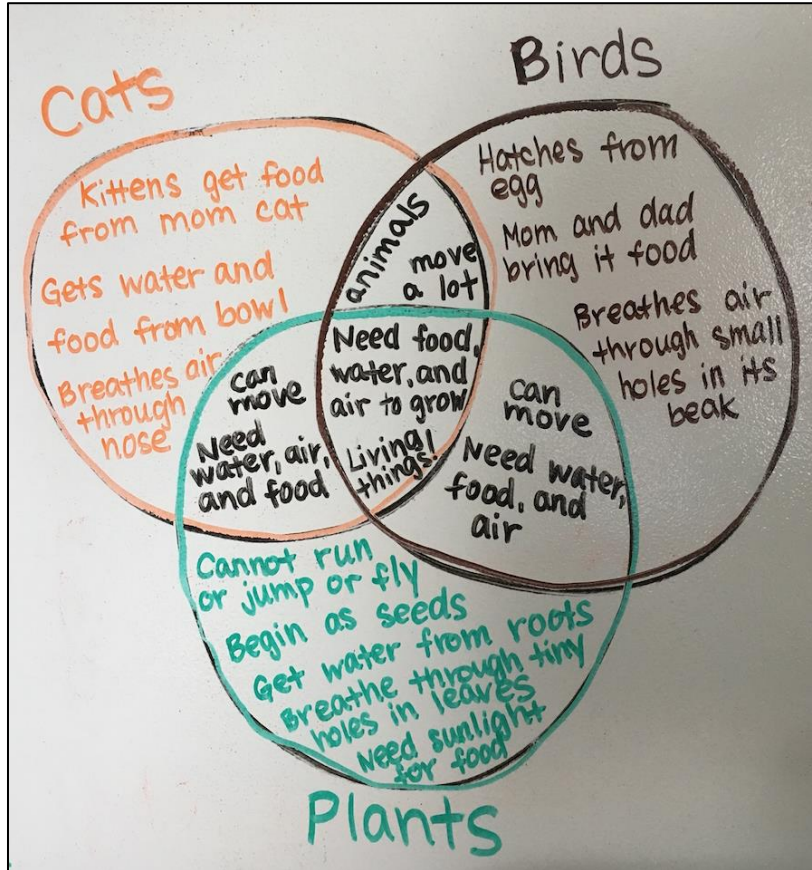 Cats
Kittens get food
from mom cat
Gets water and
food from bowl
Breathes air
through
nose
Birds
Hatches from
egg
Mom and dad
bring it food
Breathes air
through small
holes in its
beak
animals
move
a lot
Need food,
water, and
air to grow
Living!
things!
can
move
Need
water, air,
and food
can
move
Need water,
food, and
air
Cannot run
or jump or fly
Begin as seeds
Get water from roots
Breathe through tiny
holes in leaves
Need sunlight
for food
Plants